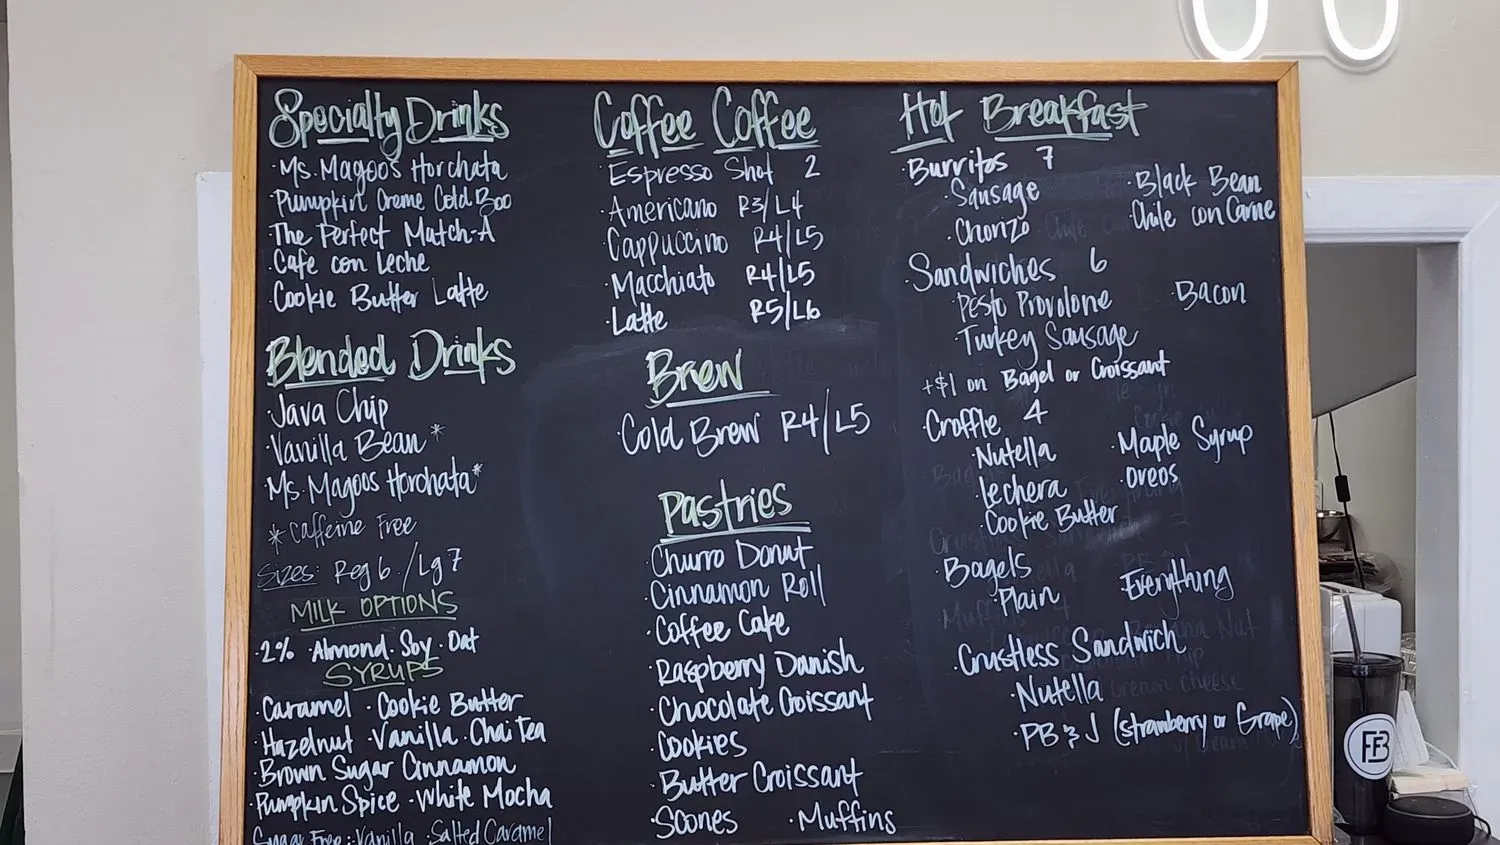 Specialty Drinks
·Ms. Magoo's Horchata
·Pumpkin Creme Cold Boo
·The Perfect Match-A
·Cafe con Leche
·Cookie Butter Latte
Blended Drinks
·Java Chip
·Vanilla Bean*
·Ms. Magoos Horchata*
*Caffeine Free
Sizes: Reg 6 / Lg 7
MILK OPTIONS
2% ·Almond·Soy·Oat
SYRUPS
·Caramel ·Cookie Butter
·Hazelnut ·Vanilla ·Chai Tea
·Brown Sugar Cinnamon
·Pumpkin Spice ·White Mocha
Sugar Free: Vanilla ·Salted Caramel
Coffee Coffee
·Espresso Shot 2
·Americano R3/L4
·Cappuccino R4/L5
·Macchiato R4/L5
·Latte R5/L6
Brew
·Cold Brew R4/L5
Pastries
·Churro Donut
·Cinnamon Roll
·Coffee Cake
·Raspberry Danish
·Chocolate Croissant
·Cookies
·Butter Croissant
·Scones ·Muffins
Hot Breakfast
·Burritos 7
·Sausage ·Black Bean
·Chorizo ·Chile con Carne
·Sandwiches 6
·Pesto Provolone ·Bacon
·Turkey Sausage
+$1 on Bagel or Croissant
·Croffle 4
·Nutella ·Maple Syrup
·Lechera ·Oreos
·Cookie Butter
·Bagels
·Plain ·Everything
·Crustless Sandwich
·Nutella
·PB & J (strawberry or Grape)
FB